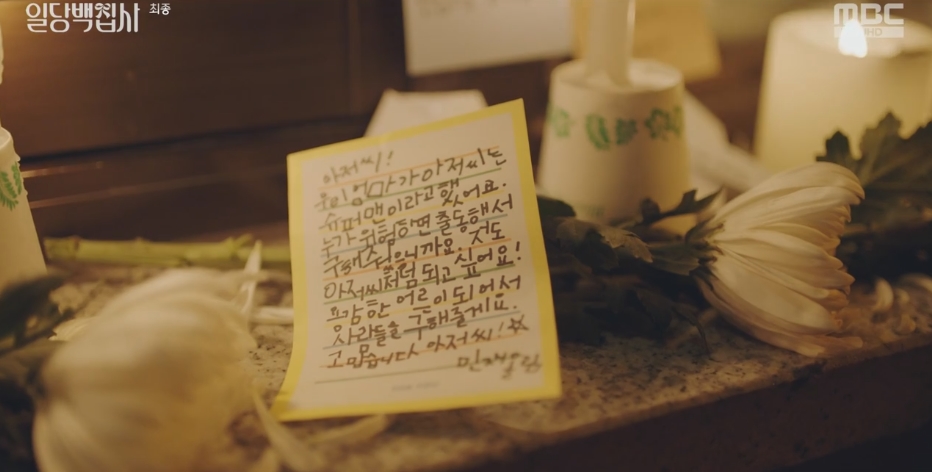 일당백집사 최종
MBC
HD
아저씨!
우리 엄마가 아저씨는
슈퍼맨이라고 했어요.
누가 위험하면 출동해서
구해주셨으니까요. 저도
아저씨처럼 되고 싶어요!
용감한 어른이 되어서
사람들을 구해줄게요.
고맙습니다 아저씨!☆
올림